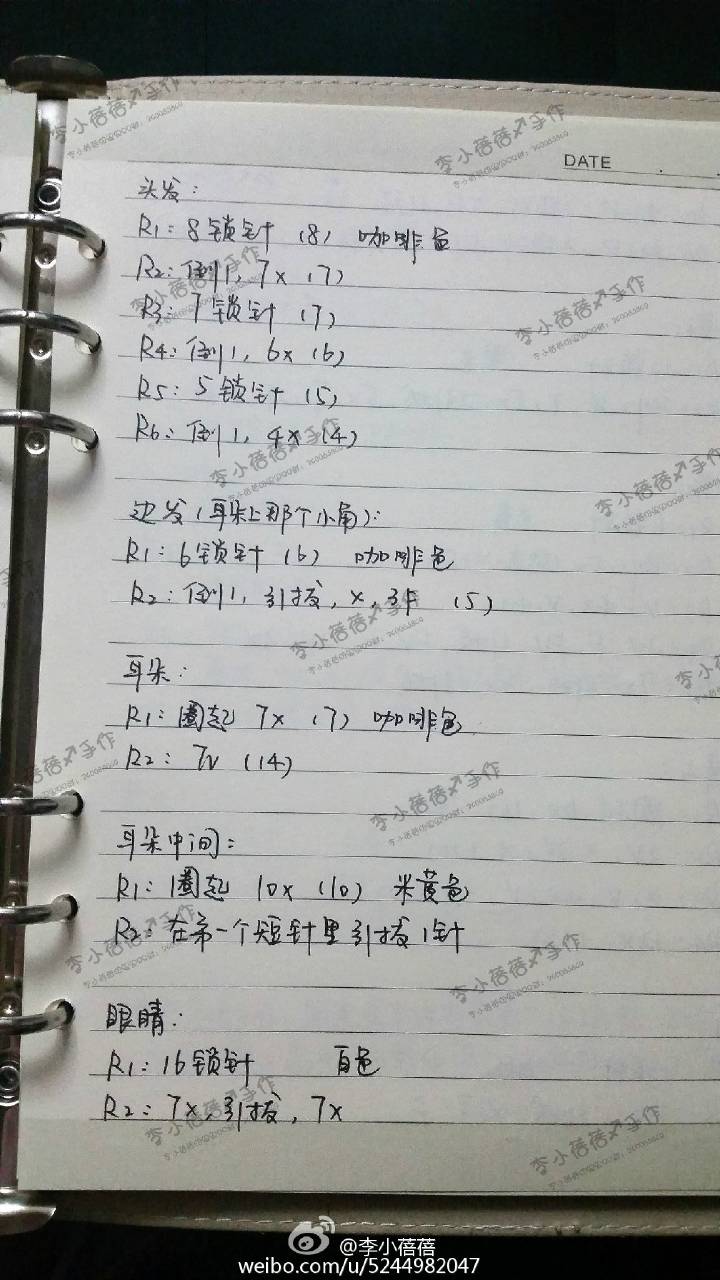 DATE
头发:
R1:8锁针 (8) 咖啡色
R2:倒1,7x (7)
R3:7锁针 (7)
R4:倒1,6x (6)
R5:5锁针 (5)
R6:倒1,4x (4)
边发(耳朵上那个小角):
R1:6锁针 (6) 咖啡色
R2:倒1,引拔,x,3F (5)
耳朵:
R1:1圈起 7x (7) 咖啡色
R2:7v (14)
耳朵中间:
R1:1圈起 10x (10) 米黄色
R2:在第一个短针里引拔1针
眼睛:
R1:16锁针 白色
R2:7x,引拔,7x
李小蓓蓓手作
@李小蓓蓓
weibo.com/u/5244982047